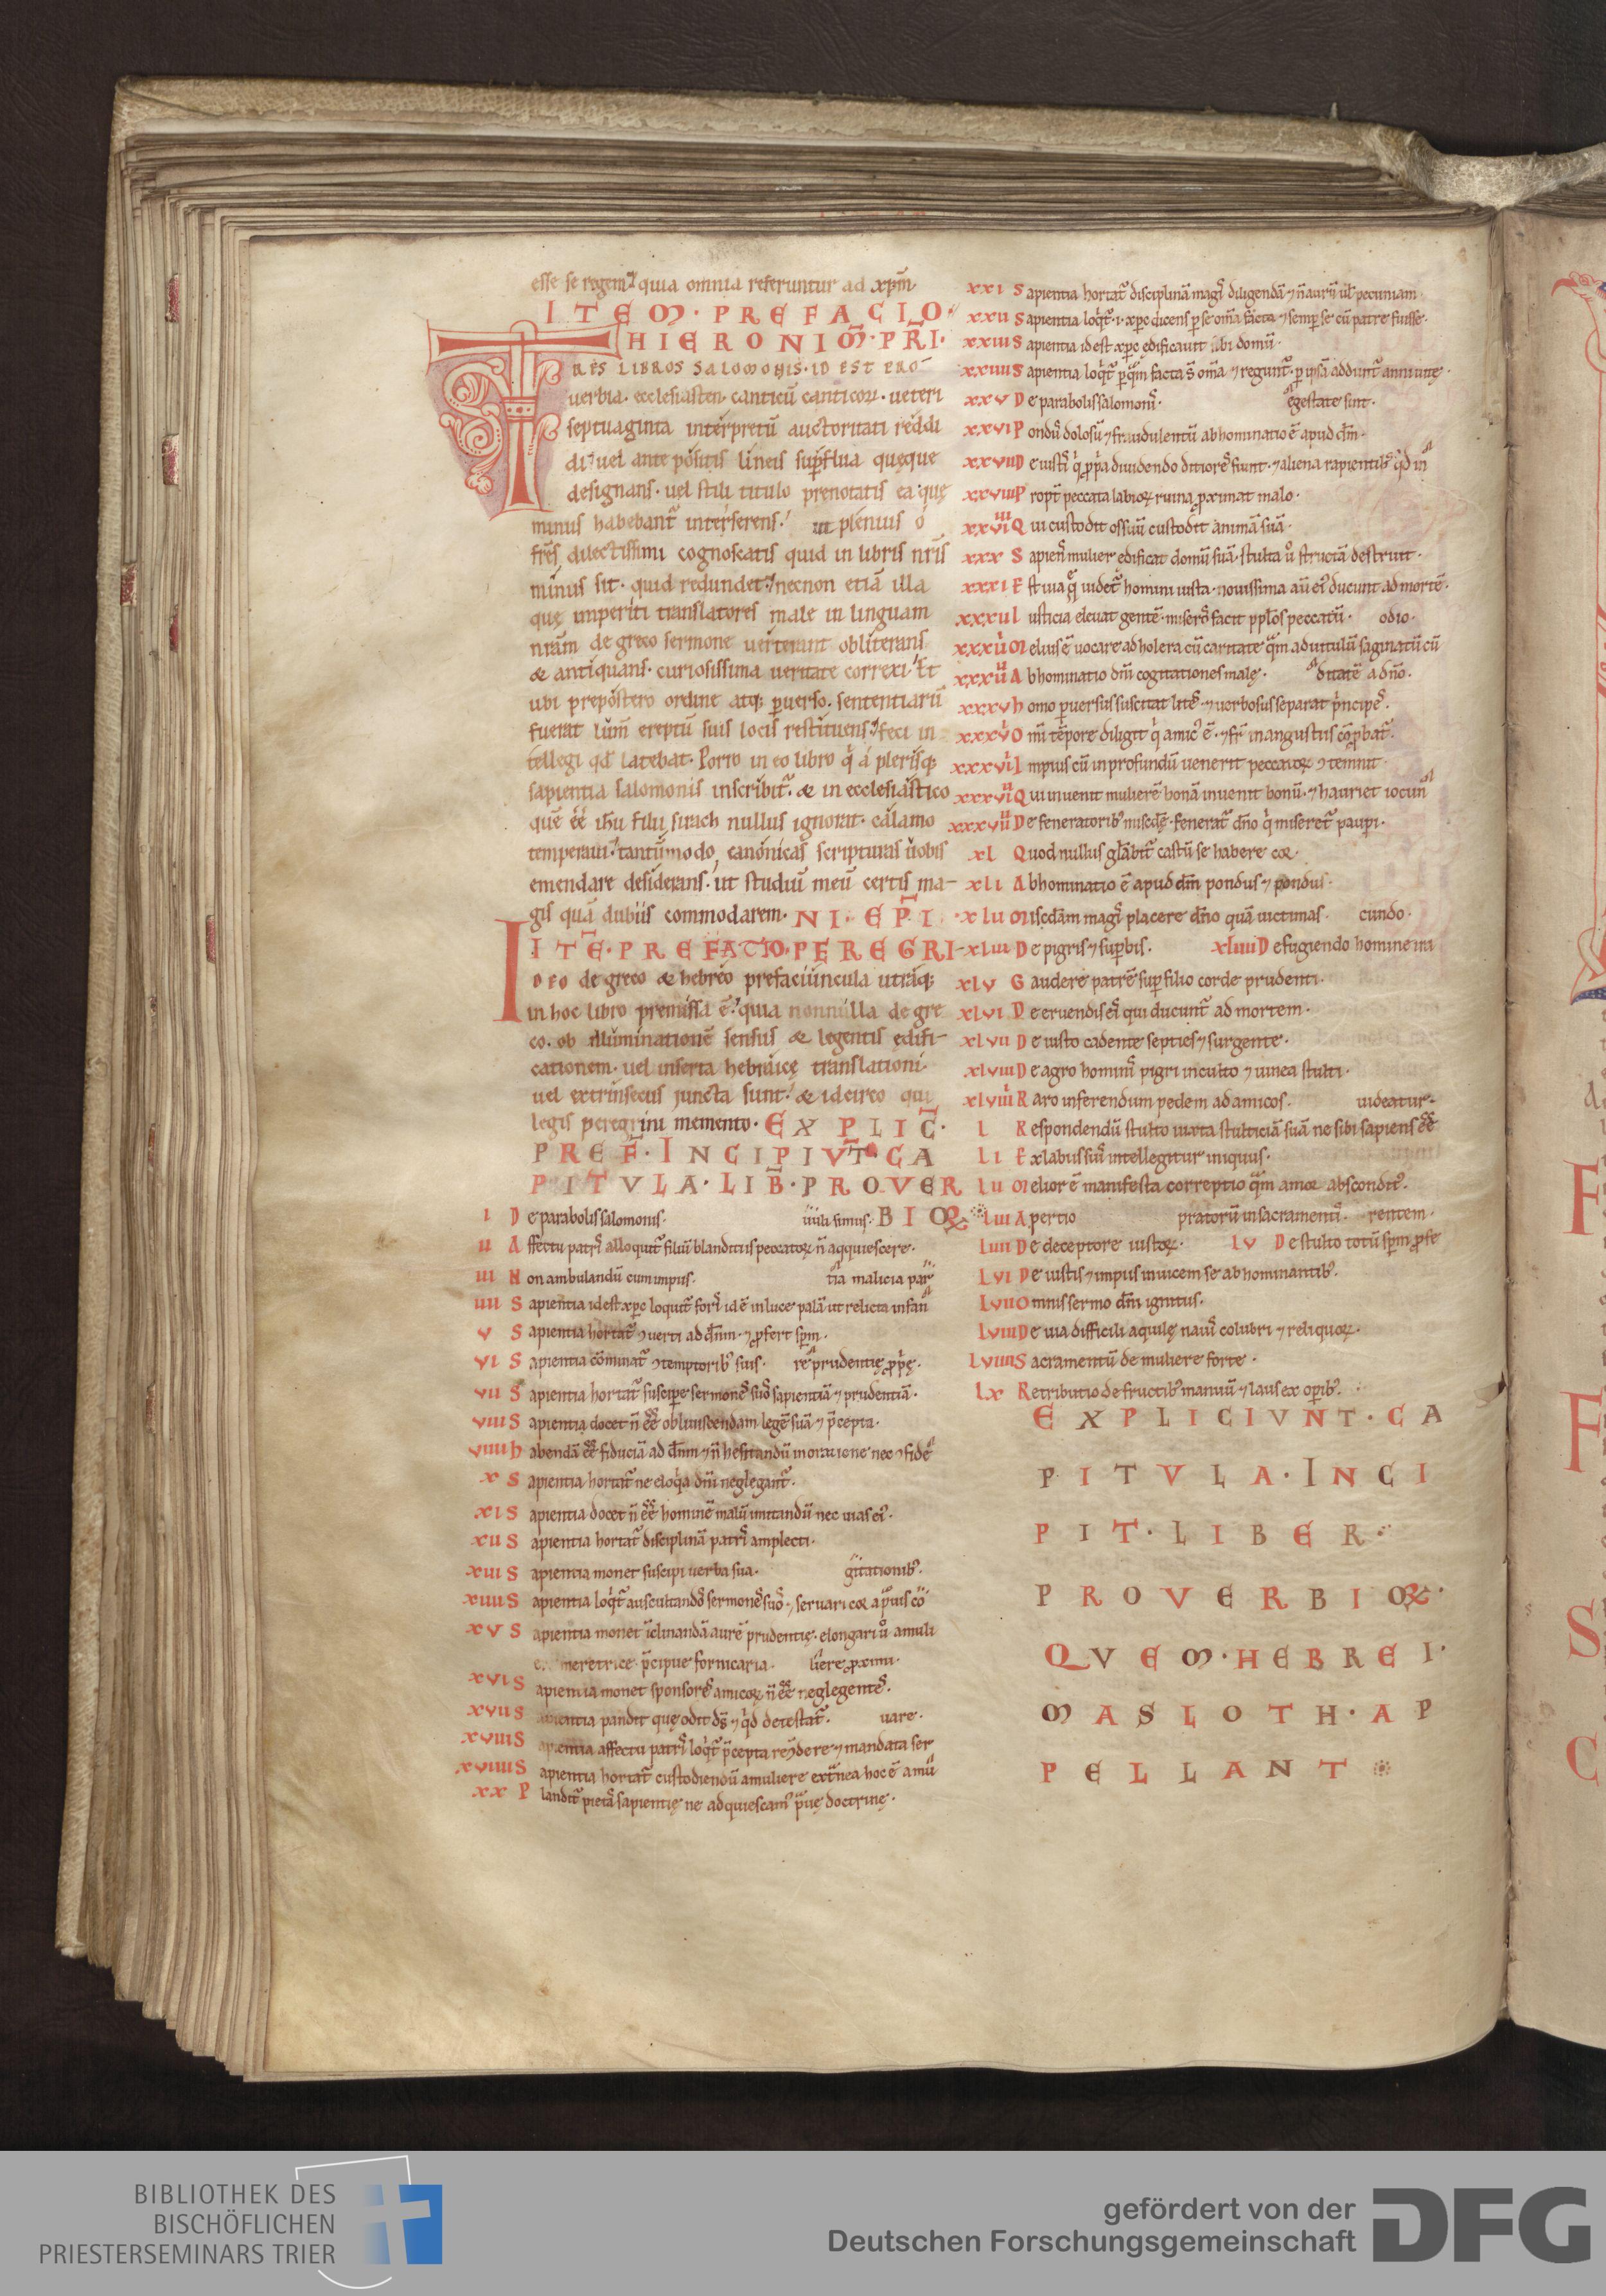 esse se regem; quia omnia referuntur ad xp̄m
ITEM · PREFACIO ·
HIERONIM̄ · PR̄I ·
TRES LIBROS SALOMONIS · ID EST PRO
verbia · ecclesiasten · canticū canticoꝝ · ueteri
septuaginta interpretū auctoritati reddi
di; uel ante positis lineis sup̄flua quęque
designans · uel stili titulo prenotatis ea quę
minus habebant᷑ interserens; ut plenius o
fr̄es dilectissimi cognoscatis quid in libris nr̄is
minus sit · quid redundet; necnon etiā illa
quę imperiti translatores male in linguam
nr̄am de greco sermone uerterant obliterans
& antiquans · curiosissima ueritate correxi; Et
ubi prepostero ordine atq; ꝑuerso · sententiarū
fuerat lum̄ ereptū suis locis restituens; feci in
tellegi qd̄ latebat · Porro in eo libro q̇ á plerisq;
sapientia salomonis inscribit᷑ · & in ecclesiastico
quē eē ih̄u filii sirach nullus ignorat · cálamo
temperaui; tantūmodo canónicas scripturas uobis
emendare desiderans · ut studiū meū certis ma-
gis quā dubiis commodarem · NI · EP̄I
ITĒ · PREFATIO · PEREGRI-
IDEO de greco & hebreo prefaciuncula utraq;
in hoc libro premissa ē; quia nonnulla de gre
co · ob illuminationē sensus & legentis edifi-
cationem · uel inserta hebraicę translationi ·
uel extrinsecus juncta sunt; & idcirco qui
legis peregrini memento · EXPLIC̄ ·
PREF̄ · INCIPIV̄T CA
PITVLA · LIB̄ · PROVER
BIOꝝ
I De parabolis salomonis ·
II Affectu patr̄s alloquit᷑ filiū blanditiis peccatoꝝ n̄ acquiescere ·
III Non ambulandū cum impiis · tia malicia par
IIII Sapientia id est xp̄c loquit᷑ foris id ē in luce palā ut relicta infan
V Sapientia hortat᷑ ɔuerti ad d̄nm · ⁊ ꝓfert sp̄m ·
VI Sapientia cōminat᷑ ɔtemptorib᷒ suis · re prudentię ꝓp̄ę ·
VII Sapientia hortat᷑ suscipe sermonēs suōs sapientiā ⁊ prudentiā ·
VIII Sapientia docet n̄ eē obliuiscendam legē suā ⁊ p̄cepta ·
VIIII Habendā eē fiduciā ad d̄nm ⁊ n̄ hesitandū in oratione nec ɔfide
X Sapientia hortat᷑ ne eloq̇a dn̄i neglegant᷑ ·
XI Sapientia docet n̄ eē hominē malū imitandū nec uias ei᷒ ·
XII Sapientia hortat᷑ disciplinā patris amplecti ·
XIII Sapientia monet suscipi uerba sua · gitationib᷒ ·
XIIII Sapientia loq̇t᷑ auscultandos sermones suos ⁊ seruari eos a prauis co
XV Sapientia monet īclinandā aurē prudentię · elongari ů a muli
meretrice · p̄cipue fornicaria · liere ꝓximi ·
XVI Sapientia monet sponsores amicoꝝ n̄ eē neglegentes ·
XVII Sapientia pandit quę odit ds̄ ⁊ q̇d detestat᷑ · uare ·
XVIII Sapientia affectu patris loq̇t᷑ p̄cepta reddere ⁊ mandata ser
XVIIII Sapientia hortat᷑ custodiendū a muliere extranea hoc ē a mu
XX Plandit᷑ pietas sapientię ne adquiescam᷒ prauę doctrinę ·
XXI Sapientia hortat᷑ disciplinā magis diligendā ⁊ n̄ aurū ul̄ pecuniam ·
XXII Sapientia loq̇t᷑ · i · xp̄c dicens ꝑ se om̄a facta ⁊ semp̄ se cū patre fuisse ·
XXIII Sapientia id est xp̄c ędificauit sibi domū ·
XXIIII Sapientia loq̇t᷑ ꝑ quam facta s̄ om̄a ⁊ regunt᷑ · ꝑ ipsā addunt᷑ anni uitę ·
XXV De parabolis salomonis · egestate sint ·
XXVI Pondus dolosū ⁊ fraudulentū abhominatio ē apud dm̄ ·
XXVII De iustis q̇ ꝓp̄a diuidendo ditiores fiunt · ⁊ aliena rapientib᷒ q̇d in
XXVIII Propt̄ peccata labioꝝ ruina ꝓximat malo ·
XXVIIII Qui custodit os suū custodit animā suā ·
XXX Sapiens mulier edificat domū suā · stulta ů structā destruit ·
XXXI Est uia quę uidet᷑ homini iusta · nouissima au̅ ei᷒ ducunt ad mortē ·
XXXII Iusticia eleuat gentē · miseros facit ppl̄os peccatū · odio ·
XXXIII Melius ē uocare ad holera cū caritate quam ad uitulū saginatū cū
XXXIIII Abhominatio dn̄i cogitationes malę · ditatē a dn̄o ·
XXXV Homo ꝑuersus suscitat lites · ⁊ uerbosus separat p̄ncipes ·
XXXVI Omī tēpore diligit q̇ amic᷒ ē · ⁊ fr̄ in angustiis cōꝓbat᷑ ·
XXXVII Impius cū in profundū uenerit peccatoꝝ ɔtemnit ·
XXXVIII Qui inuenit mulierē bonā inuenit bonū · ⁊ hauriet iocun
XXXVIIII De feneratorib᷒ miscdę · fenerat᷑ dn̄o q̇ miseret᷑ pauꝑi ·
XL Quod nullus gl̄abit᷑ castū se habere cor ·
XLI Abhominatio ē apud dm̄ pondus ⁊ pondus ·
XLII Miscdam magis placere dn̄o quā uictimas · cundo ·
XLIII De pigris ⁊ sup̄bis · XLIIII De fugiendo homine ira
XLV Gaudere patrē suꝑ filio corde prudenti ·
XLVI De eruendis eis qui ducunt᷑ ad mortem ·
XLVII De iusto cadente septies ⁊ surgente ·
XLVIII De agro hominis pigri inculto ⁊ uinea stulti ·
XLVIIII Raro inferendum pedem ad amicos · uideatur ·
L Respondendū stulto iuxta stulticiā suā ne sibi sapiens eē
LI Ex labiis suis intellegitur iniquus ·
LII Melior ē manifesta correptio quam amor abscondit᷒ ·
LIII Apertio pratorū in sacramentis · rentem ·
LIIII De deceptore iustoꝝ · LV De stulto totū sp̄m ꝓfe
LVI De iustis ⁊ impiis inuicem se abhominantib᷒ ·
LVII Omnis sermo dn̄i ignitus ·
LVIII De uia difficili aquilę nauis colubri ⁊ reliquoꝝ ·
LVIIII Sacramentū de muliere forte ·
LX Retributio de fructib᷒ manuū ⁊ laus ex oꝑib᷒ ·
EXPLICIVNT · CA
PITVLA · INCI
PIT · LIBER ·
PROVERBIOꝝ ·
QVEM · HEBREI ·
MASLOTH · AP
PELLANT
BIBLIOTHEK DES
BISCHÖFLICHEN
PRIESTERSEMINARS TRIER
gefördert von der
Deutschen Forschungsgemeinschaft
DFG